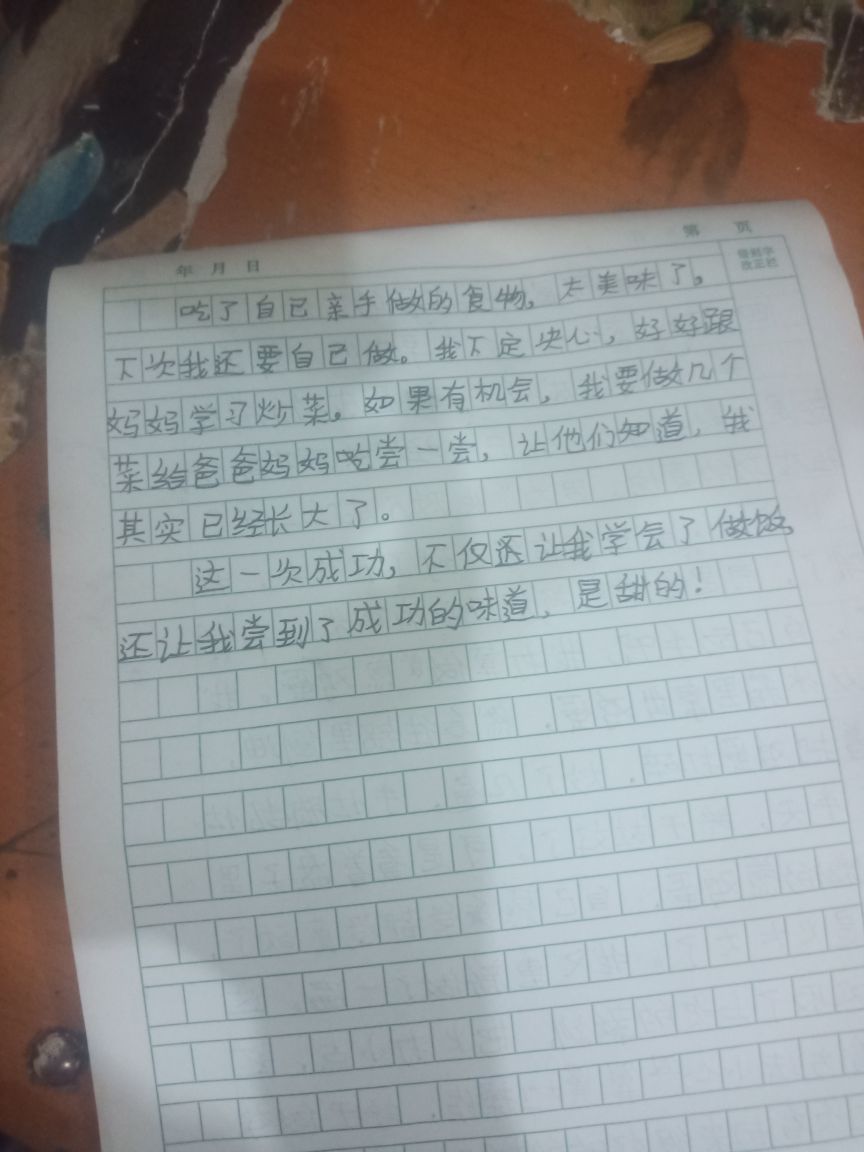 第 页
年 月 日
吃了自己亲手做的食物，太美味了。
下次我还要自己做。我下定决心，好好跟
妈妈学习炒菜。如果有机会，我要做几个
菜给爸爸妈妈吃尝一尝，让他们知道，我
其实已经长大了。
这一次成功，不仅还让我学会了做饭，
还让我尝到了成功的味道，是甜的！